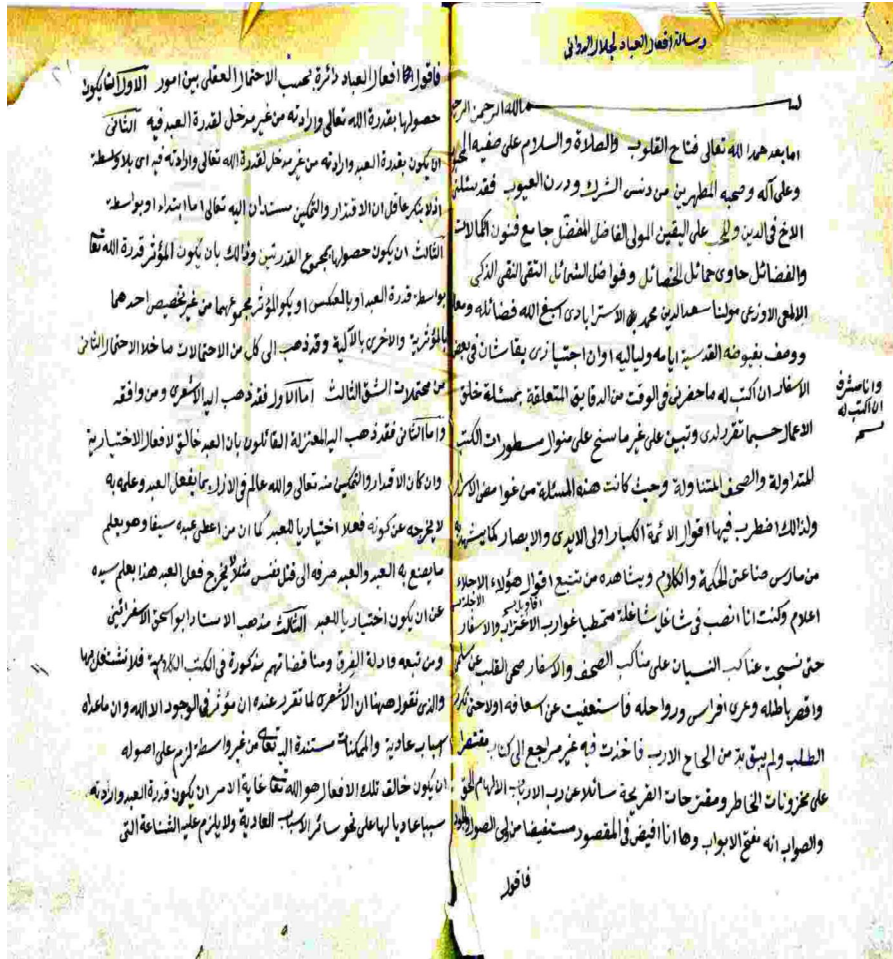 رسالة افعال العباد لجلال الدوانى
بسم الله الرحمن الرحيم
اما بعد حمد الله تعالى فتاح القلوب والصلاة والسلام على صفيه
وعلى آله وصحبه المطهرين من دنس الشرك ودرن العيوب فقد سئلنى
الاخ فى الدين على اليقين المولى الفاضل المفضل جامع فنون الكمالات
والفضائل حاوى الخصائل وفواضل الشمائل التقى النقى الذكى
الالمعى الاوزعى مولنا سعد الدين محمد الاسترابادى اسبغ الله فضائله
ووصف بفيوضه القدسية ايامه ولياليه اوان اجتيازى بقاشان فى بعض
الاسفار ان اكتب له ما حضرنى فى الوقت من الدقايق المتعلقة بمسئلة خلق
الاعمال حسبما تقرر لدى وتبين على غير ما سنح على منوال مسطورات الكتب
المتداولة والصحف المتناولة وحيث كانت هذه المسئلة من غوامض الاسرار
ولذالك اضطرب فيها اقوال الائمة الكبار اولى الايدى والابصار كما يشهد به
من مارس صناعتى الحكمة والكلام ويشاهده من تتبع اقوال هؤلاء الاجلاء
اقاويل
اعلام وكنت انا انصب فى شاغل شاغلة متمطيا غوارب الاغتراب والاسفار
حتى نسجت عناكب النسيان على مناكب الصحف والاسفار صحى القلب عن سلمى
واقصر باطله وعرى افراس ورواحله فاستعفيت عن اسعافه اولا حتى تكرر
الطلب ولم يبق بد من الحاح الارب فاخذت فيه غير مراجع الى كتاب مقتصرا
على مخزونات الخاطر ومقترحات القريحة سائلا عن رب الارباب الالهام للحق
والصواب انه مفتح الابواب وها انا افيض فى المقصود مستفيضا من
فاقول
وانا مشرف
ان اكتب له
فاقول افعال العباد دائرة بحسب الاحتمال العقلى بين امور الاول ان يكون
حصولها بقدرة الله تعالى وارادته من غير مدخل لقدرة العبد فيه الثانى
ان يكون بقدرة العبد وارادته من غير مدخل لقدرة الله تعالى وارادته فيه اى بلا واسطة
اذ لا ينكر عاقل ان الاقتدار والتمكين مستندان اليه تعالى اما ابتداء او بواسطة
الثالث ان يكون حصولها بمجموع القدرتين وذالك بان يكون المؤثر قدرة الله تعالى
بواسطة قدرة العبد او بالعكس او يكون المؤثر مجموعهما من غير تخصيص احدهما
بالمؤثرية والاخرى بالآلية وقد ذهب الى كل من الاحتمالات ما خلا الاحتمال الثانى
من محتملات الشق الثالث اما الاول فقد ذهب اليه الاشعرى ومن وافقه
واما الثانى فقد ذهب اليه المعتزلة القائلون بان العبد خالق لافعاله الاختيارية
وان كان الاقدار والتمكين منه تعالى والله عالم فى الازل بما يفعل العبد وعلمه به
لا يخرجه عن كونه فعلا اختياريا للعبد كما ان من اعطى عبده سيفا وهو يعلم
ما يصنع به العبد والعبد صرفه الى قتل نفس مثلا لا يخرج فعل العبد هذا بعلم سيده
عن ان يكون اختياريا للعبد الثالث مذهب الاستاد ابو اسحق الاسفرائينى
ومن تبعه وادلة الفرق ومناقضاتهم مذكورة فى الكتب الكلامية فلا نشتغل بها
والذى نقول ههنا ان الاشعرى لما تقرر عنده ان لا مؤثر فى الوجود الا الله وان ما عداه
اسباب عادية والممكنات مستندة اليه تعالى من غير واسطة لزم على اصوله
ان يكون خالق تلك الافعال هو الله تعالى غاية الامر ان يكون قدرة العبد وارادته
سببا عاديا لها على نحو سائر الاسباب العادية ولا يلزم عليه الشناعة التى